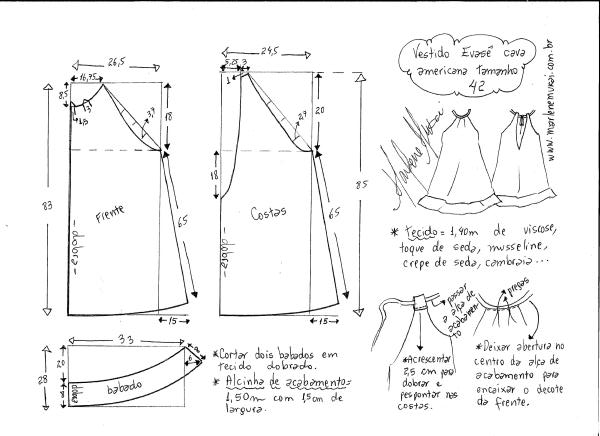 26,5
16,75
8,5
1,3
3
3,7
18
83
Frente
dobra
65
15
24,5
5,25
3
1
2,7
20
18
85
Costas
dobra
65
15
Vestido Evasê cava
americana tamanho
42
www.marlenemukai.com.br
Marlene Mukai
* tecido = 1,40m de viscose,
toque de seda, musseline,
crepe de seda, cambraia...
33
20
28
8
6
babado
dobra
*Cortar dois babados em
tecido dobrado.
* Alcinha de acabamento =
1,50m com 15cm de
largura.
passar
a alça de
acabamento
*Acrescentar
2,5 cm para
dobrar e
pespontar nas
costas.
pregas
*Deixar abertura no
centro da alça de
acabamento para
encaixar o decote
da frente.